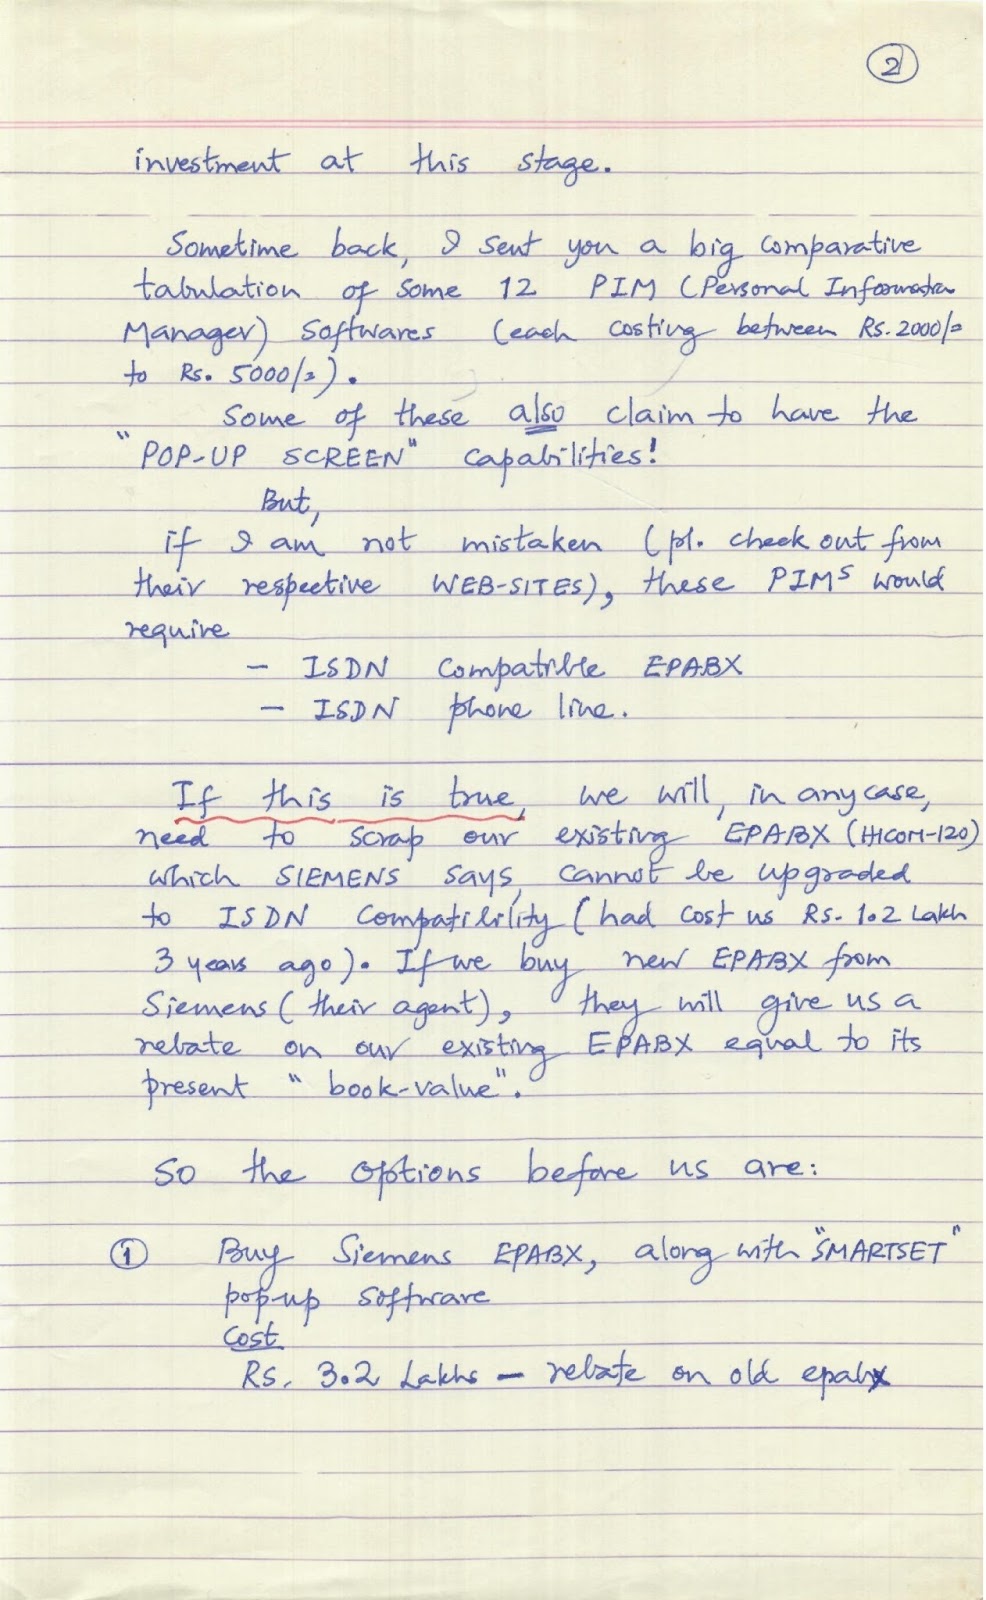 2
investment at this stage.
Sometime back, I sent you a big comparative
tabulation of some 12 PIM (Personal Information
Manager) Softwares (each costing between Rs. 2000/=
to Rs. 5000/=).
Some of these also claim to have the
"POP-UP SCREEN" capabilities!
But,
if I am not mistaken (pl. check out from
their respective WEB-SITES), these PIMs would
require
- ISDN Compatible EPABX
- ISDN phone line.
If this is true, we will, in any case,
need to scrap our existing EPABX (HICOM-120)
which SIEMENS says, cannot be upgraded
to ISDN Compatibility (had cost us Rs. 1.2 Lakh
3 years ago). If we buy new EPABX from
Siemens (their agent), they will give us a
rebate on our existing EPABX equal to its
present "book-value".
So the options before us are:
1 Buy Siemens EPABX, along with "SMARTSET"
pop-up software
Cost
Rs. 3.2 Lakhs - rebate on old epabx